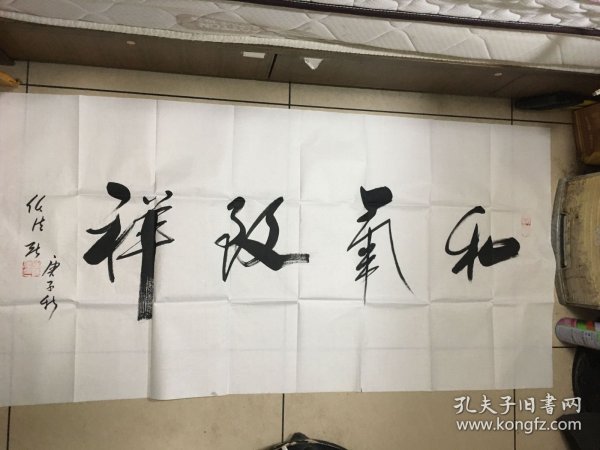 和氣致祥
庚子秋
孔夫子旧书网
www.kongfz.com